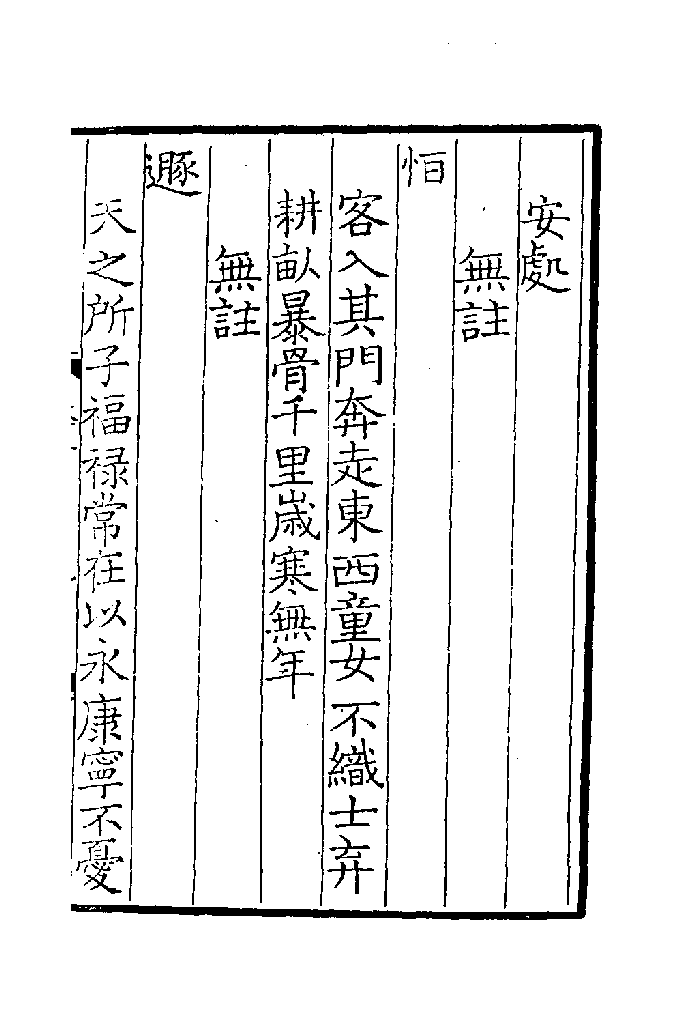 安處
無註
恒
客入其門奔走東西童女不織士弃
耕畝暴骨千里嵗寒無年
無註
遯
天之所子福禄常在以永康寧不憂